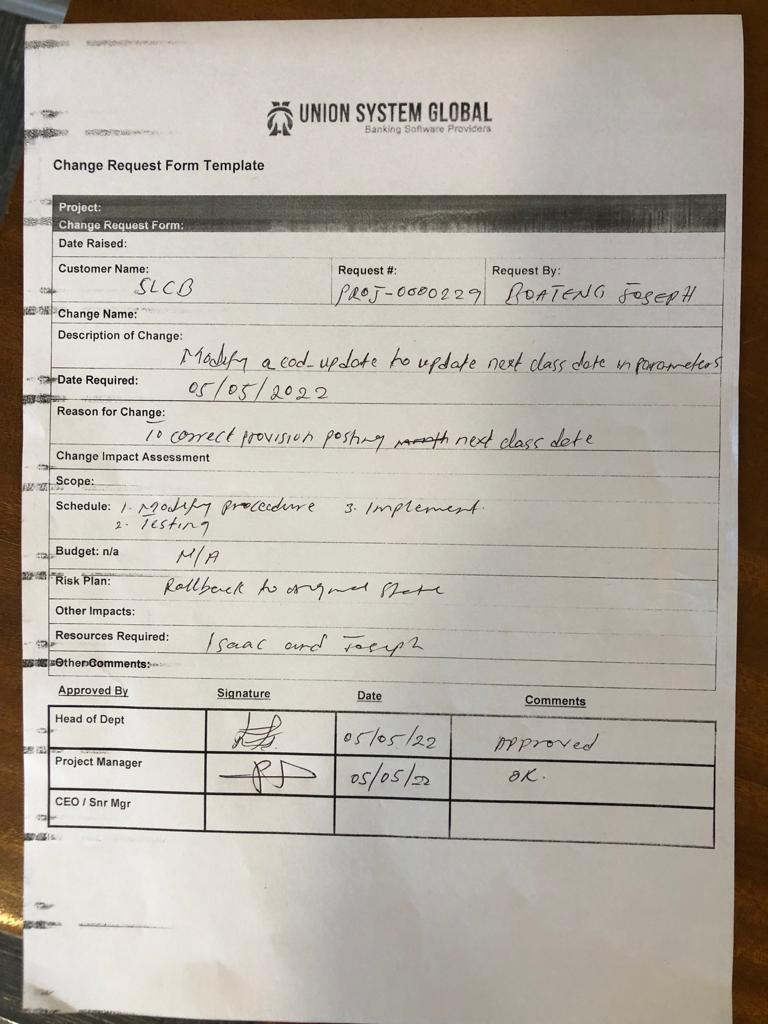 UNION SYSTEM GLOBAL
Banking Software Providers
Change Request Form Template
Project:
Change Request Form:
Date Raised:
Customer Name: Request #: Request By:
SLCB PROJ-0000229 BOATENG JOSEPH
Change Name:
Description of Change:
Modify a eod_update to update next class date in parameters
Date Required:
05/05/2022
Reason for Change:
To correct provision posting next class date
Change Impact Assessment
Scope:
Schedule: 1. Modify procedure 3. Implement.
2. Testing
Budget: n/a N/A
Risk Plan: Rollback to original state
Other Impacts:
Resources Required: Isaac and Joseph
Other Comments:
Approved By Signature Date Comments
Head of Dept 05/05/22 Approved
Project Manager 05/05/22 OK.
CEO / Snr Mgr